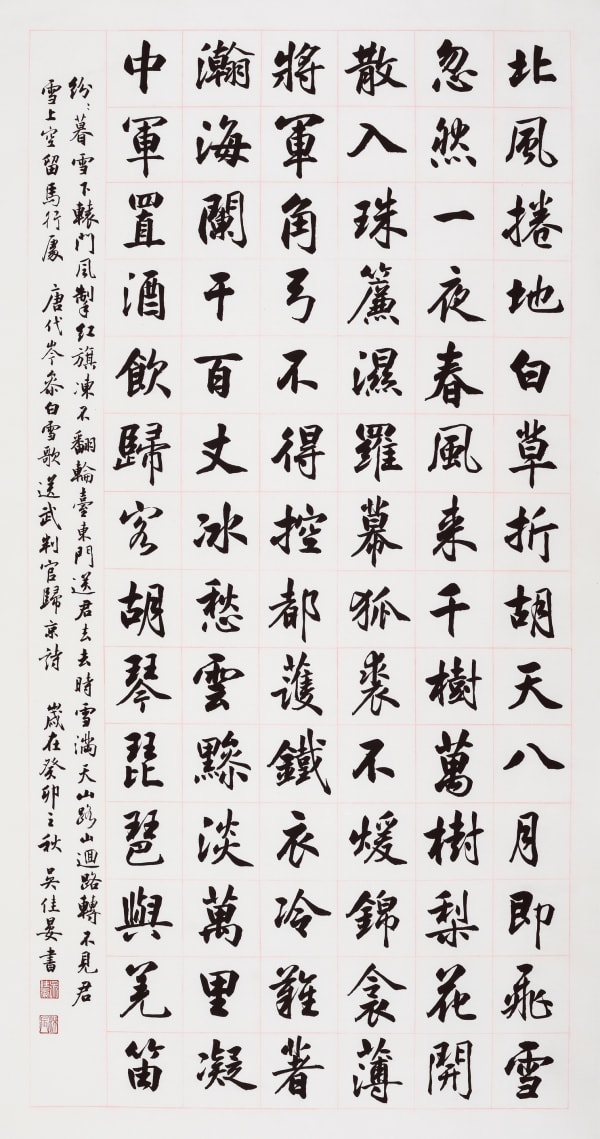 北風捲地白草折胡天八月即飛雪
忽然一夜春風来千樹萬樹梨花開
散入珠簾濕羅幕狐裘不煖錦衾薄
將軍角弓不得控都護鐵衣冷難著
瀚海闌干百丈冰愁雲黲淡萬里凝
中軍置酒飲歸客胡琴琵琶與羌笛
紛〻暮雪下轅門風掣红旗凍不翻輪臺東門送君去去時雪満天山路山迴路轉不見君
雪上空留馬行處 唐代岑參白雪歌送武判官歸京詩 歲在癸卯之秋 吳佳晏書